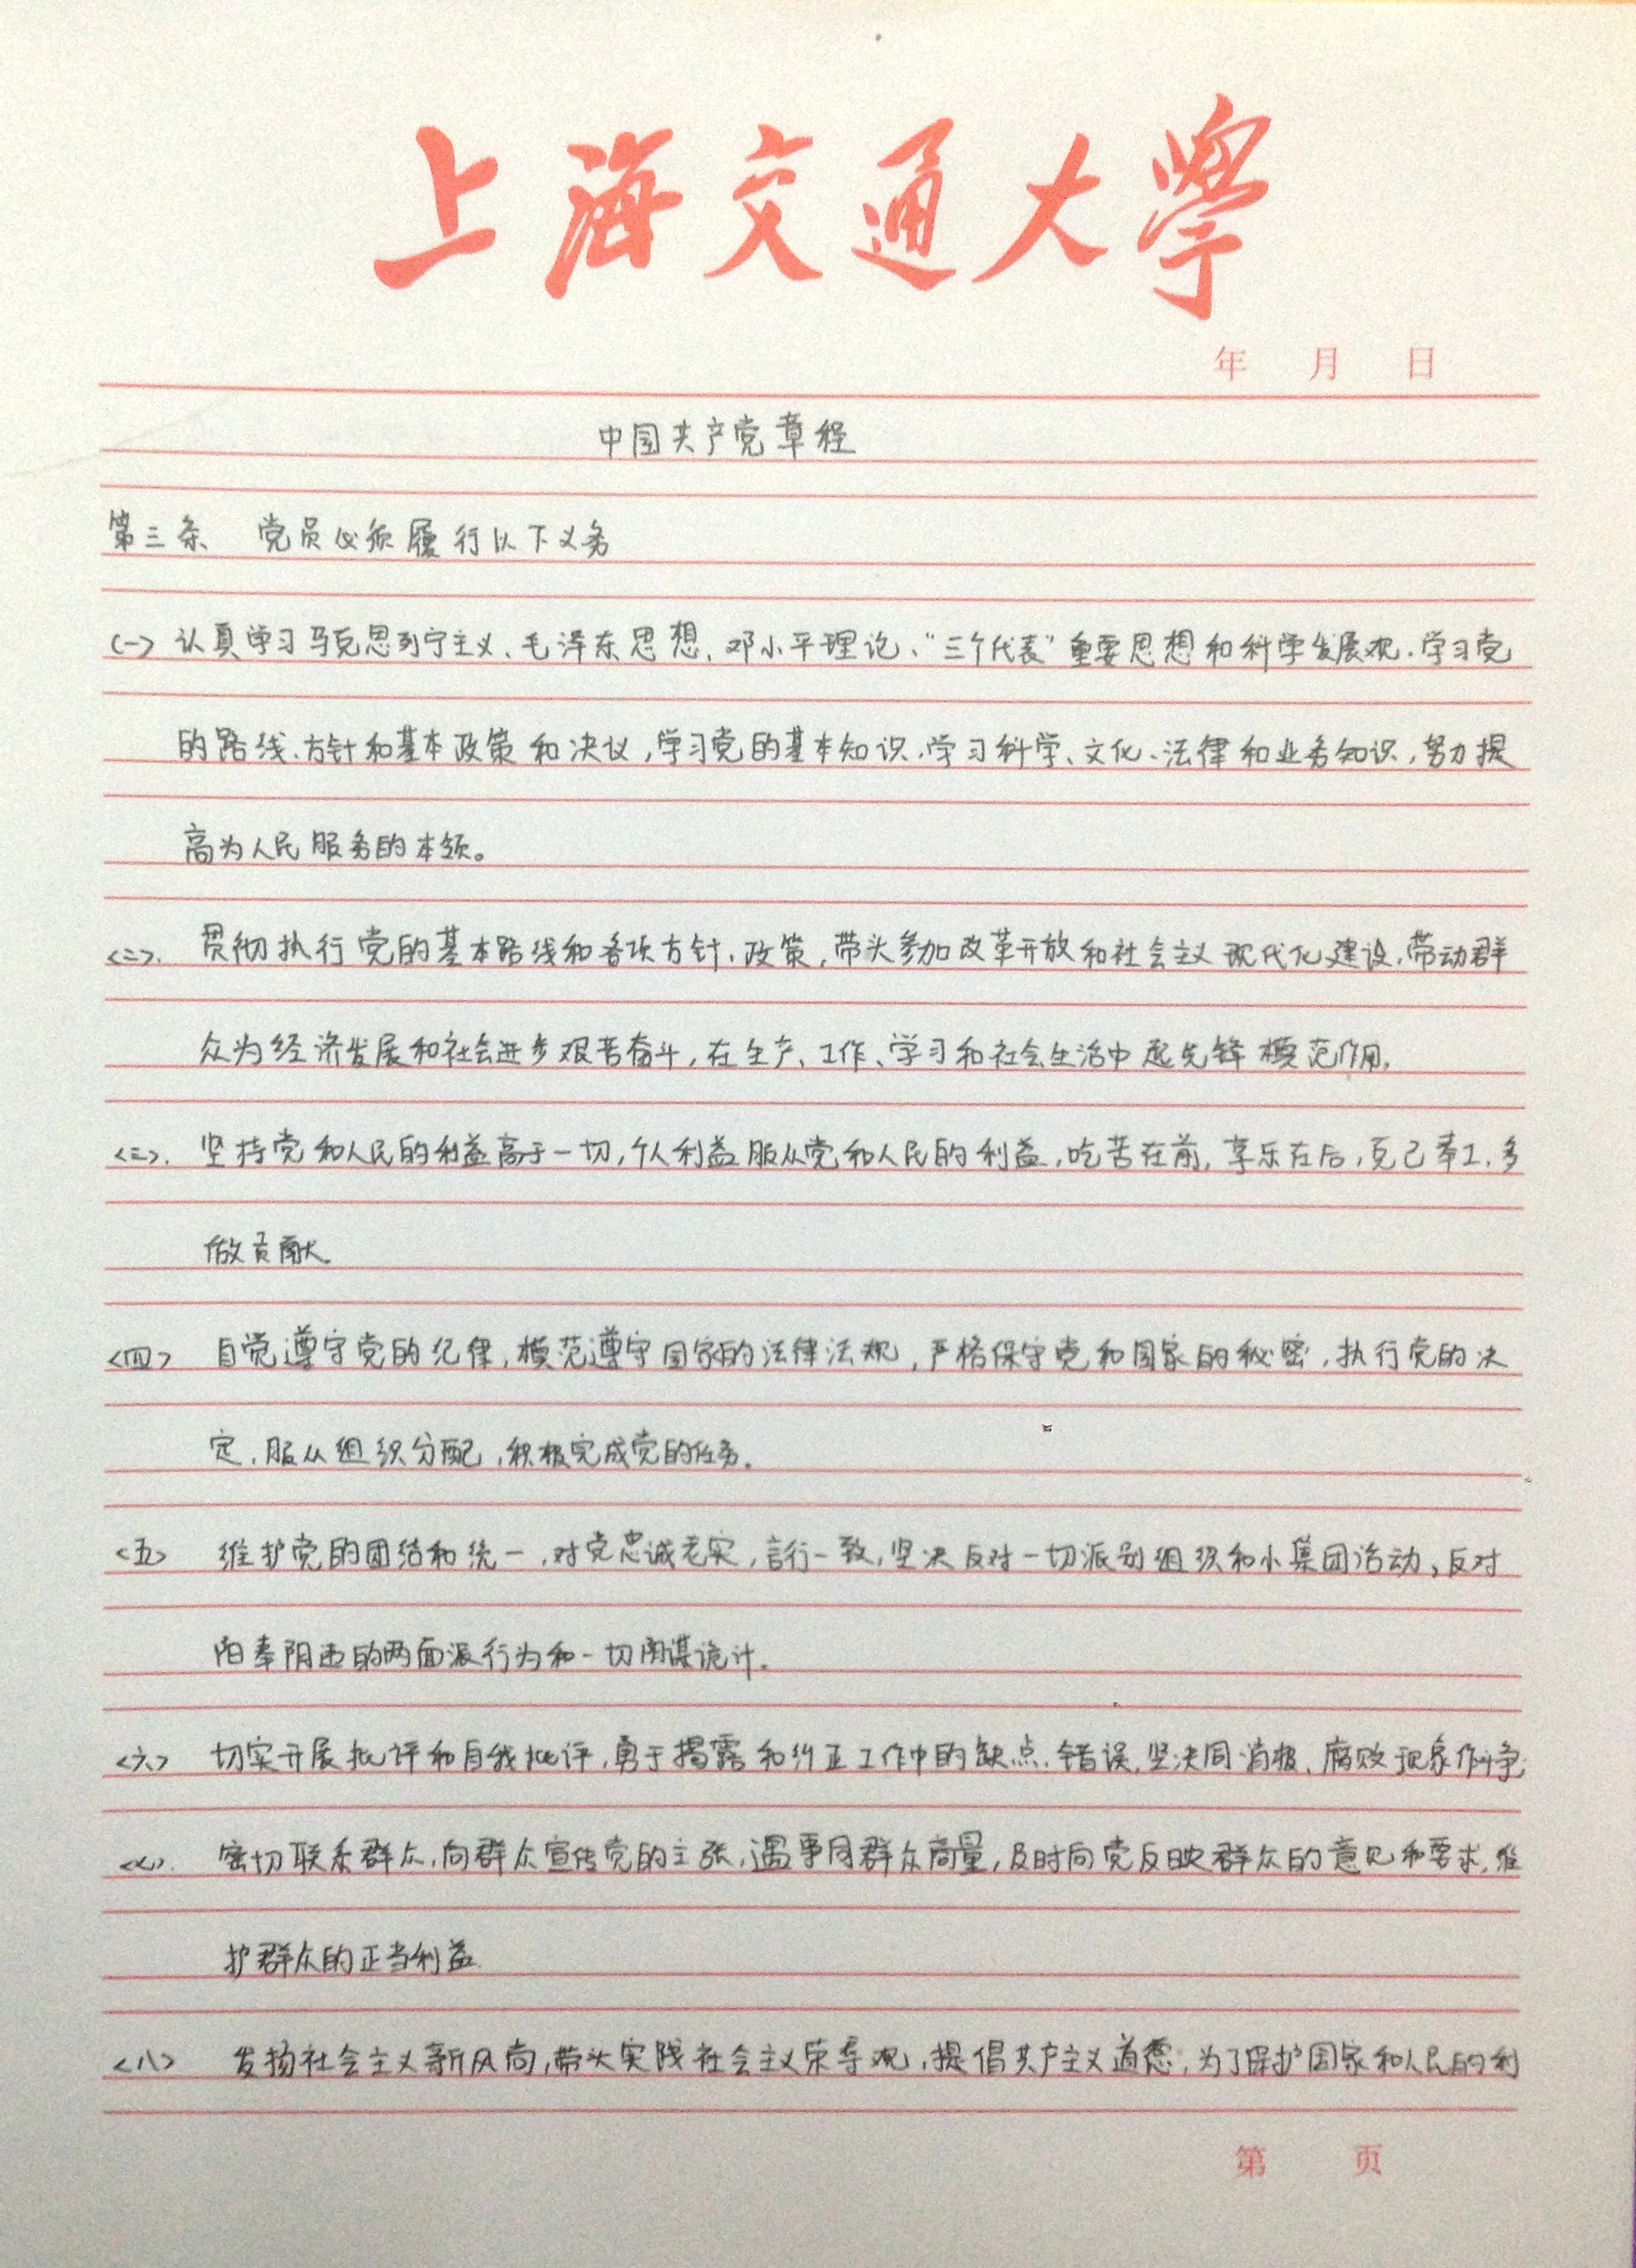 上海交通大學
年 月 日
中国共产党章程
第三条 党员必须履行以下义务
(一) 认真学习马克思列宁主义、毛泽东思想、邓小平理论、“三个代表”重要思想和科学发展观,学习党
的路线、方针和基本政策和决议,学习党的基本知识,学习科学、文化、法律和业务知识,努力提
高为人民服务的本领。
<二>. 贯彻执行党的基本路线和各项方针、政策,带头参加改革开放和社会主义现代化建设,带动群
众为经济发展和社会进步艰苦奋斗,在生产、工作、学习和社会生活中起先锋模范作用。
<三>. 坚持党和人民的利益高于一切,个人利益服从党和人民的利益,吃苦在前,享乐在后,克己奉工,多
做贡献。
<四> 自觉遵守党的纪律,模范遵守国家的法律法规,严格保守党和国家的秘密,执行党的决
定,服从组织分配,积极完成党的任务。
<五> 维护党的团结和统一,对党忠诚老实,言行一致,坚决反对一切派别组织和小集团活动,反对
阳奉阴违的两面派行为和一切阴谋诡计。
<六> 切实开展批评和自我批评,勇于揭露和纠正工作中的缺点、错误,坚决同消极、腐败现象作斗争
<七>. 密切联系群众,向群众宣传党的主张,遇事同群众商量,及时向党反映群众的意见和要求,维
护群众的正当利益
<八> 发扬社会主义新风尚,带头实践社会主义荣辱观,提倡共产主义道德,为了保护国家和人民的利
第 页